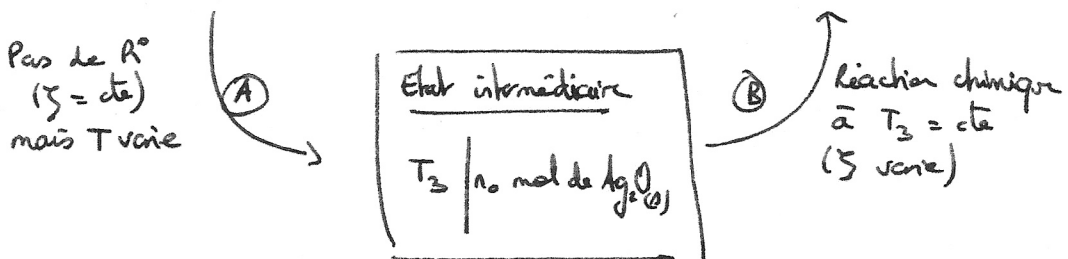 Pas de R°
(ξ = cte)
mais T varie
A
Etat intermédiaire
T₃ | n₀ mol de Ag₂O(s)
B
Réaction chimique
à T₃ = cte
(ξ varie)